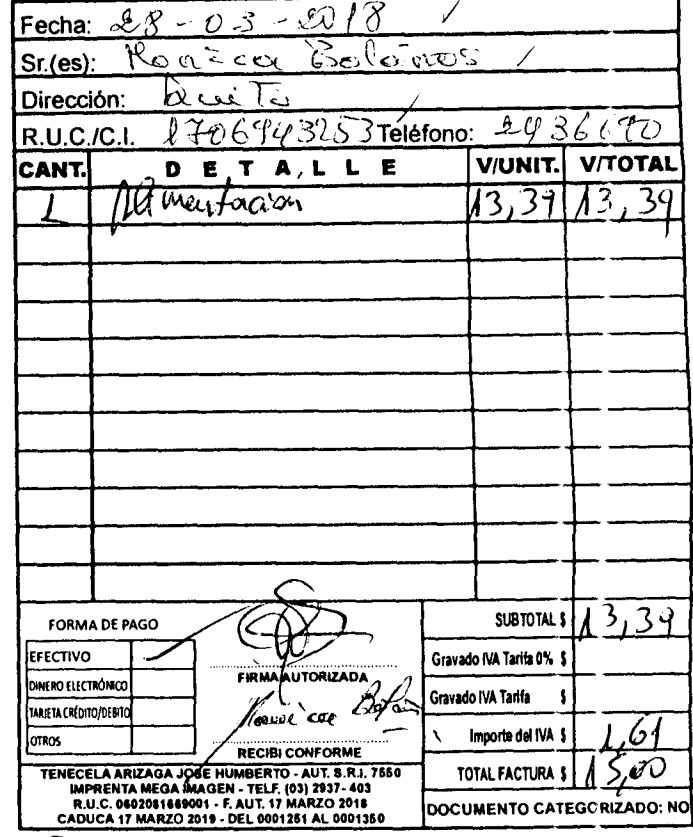 Fecha: 28-03-2018
Sr.(es): Monica Bolaños
Dirección: Quito
R.U.C./C.I. 1706943253 Teléfono: 2436670
CANT. DETALLE V/UNIT. V/TOTAL
1 Alimentacion 13,39 13,39
FORMA DE PAGO
EFECTIVO
DINERO ELECTRÓNICO
TARJETA CRÉDITO/DEBITO
OTROS
FIRMA AUTORIZADA
Monica Bolaños
RECIBI CONFORME
SUBTOTAL $ 13,39
Gravado IVA Tarifa 0% $
Gravado IVA Tarifa $
Importe del IVA $ 1,61
TOTAL FACTURA $ 15,00
TENECELA ARIZAGA JOSE HUMBERTO - AUT. S.R.I. 7550
IMPRENTA MEGA IMAGEN - TELF. (03) 2937- 403
R.U.C. 0602081669001 - F. AUT. 17 MARZO 2018
CADUCA 17 MARZO 2019 - DEL 0001251 AL 0001350
DOCUMENTO CATEGORIZADO: NO